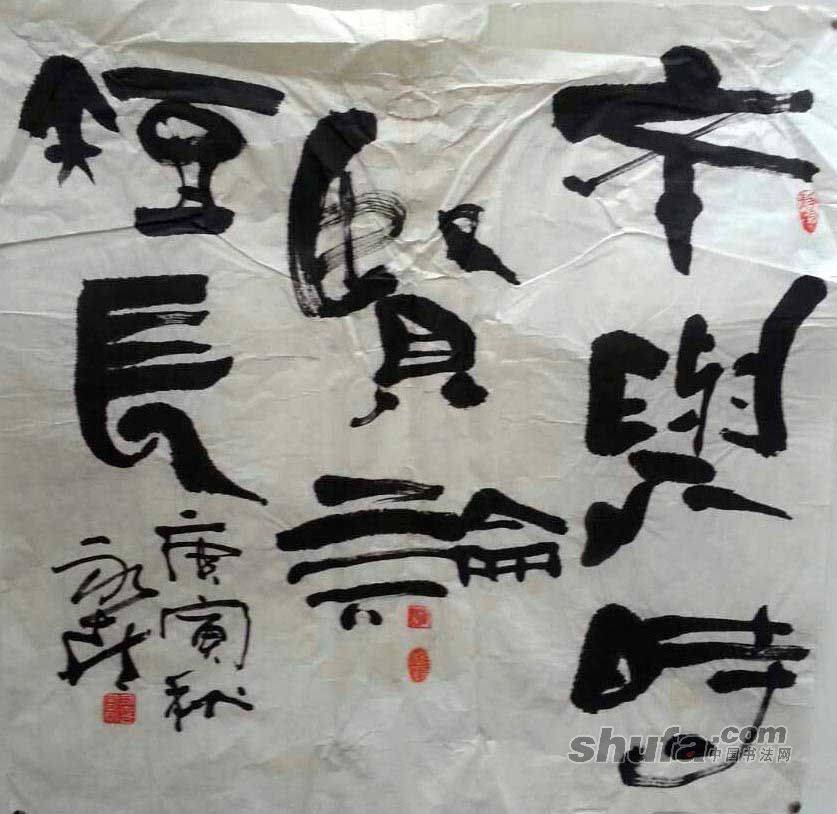 不與時
賢論
短長
庚寅秋
永
shufa.com
中国书法网